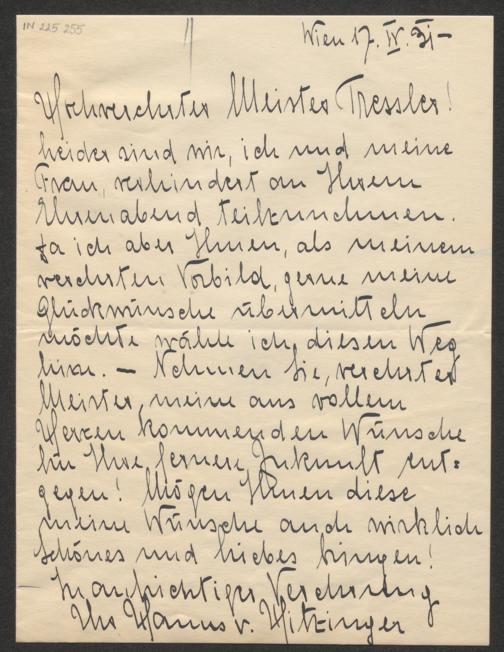 IN 225 255
Wien 17. IV. 31-
Hochverehrter Meister Tressler!
leider sind wir, ich und meine
Frau, verhindert an Ihrem
Ehrenabend teilzunehmen.
Da ich aber Ihnen, als meinem
verehrten Vorbild, gerne meine
Glückwünsche übermitteln
möchte wähle ich diesen Weg
hiezu. — Nehmen Sie, verehrter
Meister, meine aus vollem
Herzen kommenden Wünsche
für Ihre fernere Zukunft ent=
gegen! Mögen Ihnen diese
meine Wünsche auch wirklich
Schönes und Liebes bringen!
In aufrichtiger Verehrung
Ihr Hanns v.